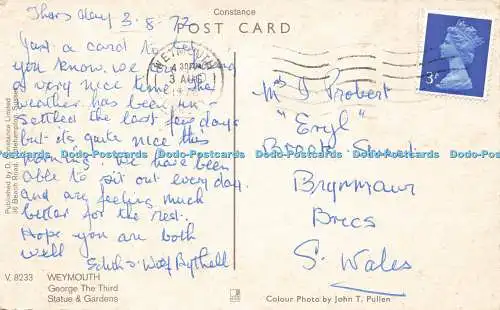 Constance
POST CARD
Thursday 3-8-72
Just a card to let
you know we are having
a very nice time. The
weather has been un-
settled the last few days
but its quite nice this
morning. We have been
able to sit out every day
and are feeling much
better for the rest.
Hope you are both
well
Edith &
WEYMOUTH
3 AUG
Mrs J Probert
"Eryl"
Brynmawr
Brecs
S. Wales
Published by D. Constance Limited
V. 8233 WEYMOUTH
George The Third
Statue & Gardens
Colour Photo by John T. Pullen
Dodo-Postcards Dodo-Postcards Dodo-Postcards Dodo-Postcards